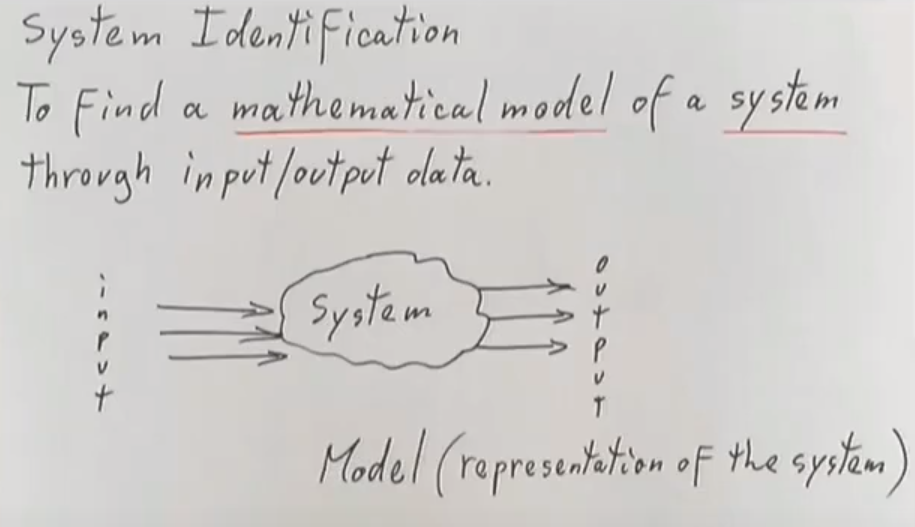 System Identification
To Find a mathematical model of a system
through input/output data.
input
System
output
Model (representation of the system)